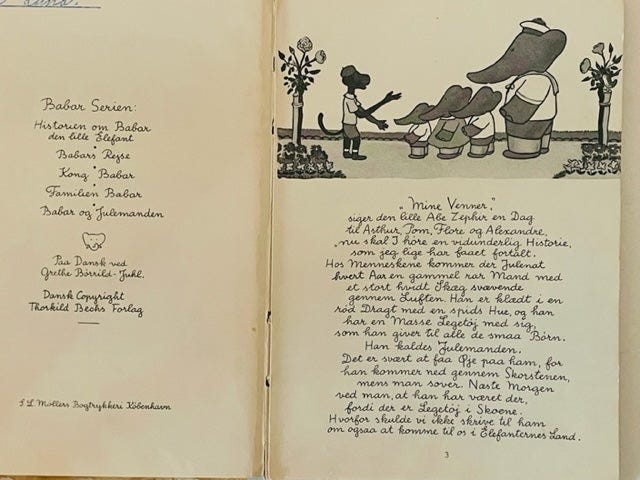 Lund.
Babar Serien:
Historien om Babar
den lille Elefant
Babars Rejse
Kong Babar
Familien Babar
Babar og Julemanden
Paa Dansk ved
Grethe Börrild-Juhl.
Dansk Copyright
Thorkild Bechs Forlag
S. L. Møllers Bogtrykkeri København
„Mine Venner,"
siger den lille Abe Zephir en Dag
til Arthur, Pom, Flore og Alexandre,
„nu skal I høre en vidunderlig Historie,
som jeg lige har faaet fortalt.
Hos Menneskene kommer der Julenat
hvert Aar en gammel rar Mand med
et stort hvidt Skæg svævende
gennem Luften. Han er klædt i en
rød Dragt med en spids Hue, og han
har en Masse Legetøj med sig,
som han giver til alle de smaa Börn.
Han kaldes Julemanden.
Det er svært at faa Øje paa ham, for
han kommer ned gennem Skorstenen,
mens man sover. Næste Morgen
ved man, at han har været der,
fordi der er Legetøj i Skoene.
Hvorfor skulde vi ikke skrive til ham
om ogsaa at komme til os i Elefanternes Land.
3